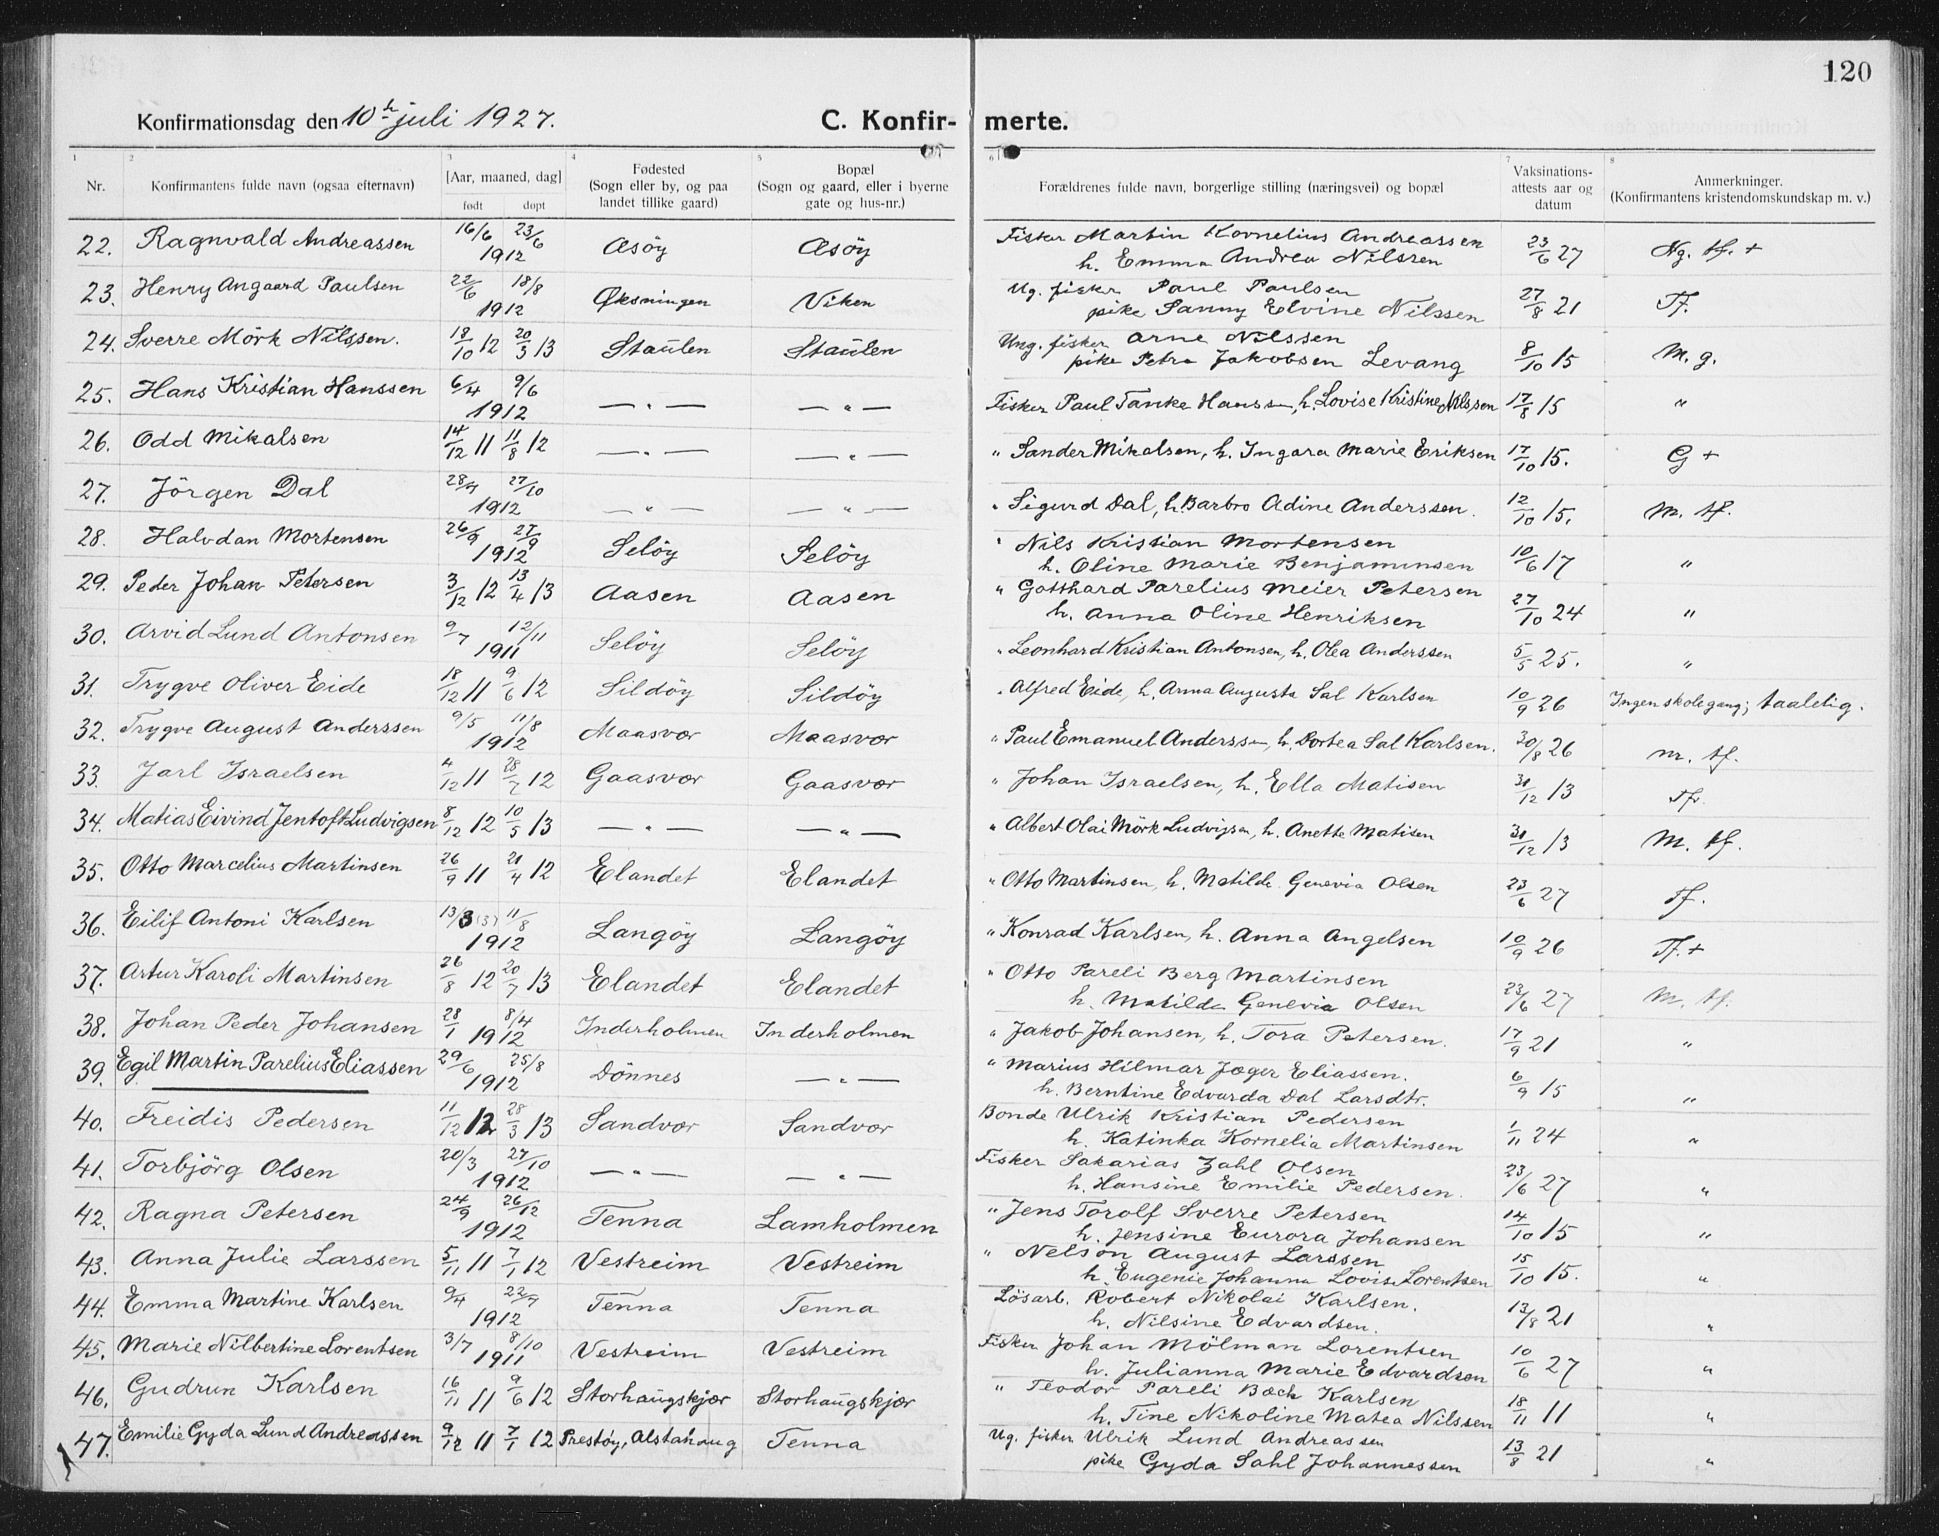 120
Konfirmationsdag den 10h juli 1927. C. Konfir- merte.
1 2 3 4 5 6 7 8
Nr. Konfirmantens fulde navn (ogsaa efternavn) [Aar, maaned, dag] født døpt Fødested (Sogn eller by, og paa landet tillike gaard) Bopæl (Sogn og gaard, eller i byerne gate og hus-nr.) Forældrenes fulde navn, borgerlige stilling (næringsvei) og bopæl Vaksinations-attests aar og datum Anmerkninger. (Konfirmantens kristendomskundskap m. v.)
22. Ragnvald Andreassen 16/6 23/6 1912 Æsöy Æsöy Fisker Martin Kornelius Andreassen h. Emma Andrea Nilssen 23/6 27 Ng. tf. +
23. Henry Angaard Paulsen 22/6 18/8 1912 Øksningen Viken Ug. fisker Paul Paulsen pike Sanny Elvine Nilssen 27/8 21 Tf.
24. Sverre Mörk Nilssen. 18/10 12 20/3 13 Staulen Staulen Ung. fisker Arne Nilssen pike Petra Jakobsen Levang 8/10 15 M. g.
25. Hans Kristian Hanssen 6/4 9/6 1912 — " — — " — Fisker Paul Tanke Hanssen, h. Lovise Kristine Nilssen 17/8 15 "
26. Odd Mikalsen 14/12 11 11/8 12 — " — — " — " Sander Mikalsen, h. Ingara Marie Eriksen 17/10 15. G +
27. Jörgen Dal 28/7 27/10 1912 — " — — " — " Sigurd Dal, h. Barbro Adine Anderssen. 12/10 15. M. tf.
28. Halvdan Mortensen 26/9 27/9 1912 Selöy Selöy " Nils Kristian Mortensen h. Oline Marie Benjaminsen 10/6 17 "
29. Peder Johan Petersen 3/12 12 13/4 13 Aasen Aasen " Gotthard Parelius Meier Petersen h. Anna Oline Henriksen 27/10 24 "
30. Arvid Lund Antonsen 9/7 12/11 1911 Selöy Selöy " Leonhard Kristian Antonsen, h. Olea Anderssen 5/5 25. "
31. Trygve Oliver Eide 18/12 11 9/6 12 Sildöy Sildöy " Alfred Eide, h. Anna Augusta Sal Karlsen 10/9 26 Ingen skolegang; taalelig.
32. Trygve August Anderssen 9/5 11/8 1912 Maasvær Maasvær " Paul Emanuel Anderssen, h. Dortea Sal Karlsen. 30/8 26 m. tf.
33. Jarl Israelsen 4/12 11 28/7 12 Gaasvær Gaasvær " Johan Israelsen, h. Ella Matisen 31/12 13 Tf.
34. Matias Eivind Jentoft Ludvigsen 8/12 12 10/5 13 — " — — " — " Albert Olai Mörk Ludvigsen, h. Anette Matisen 31/12 13 M. tf.
35. Otto Marcelius Martinsen 26/9 11 21/4 12 Elandet Elandet " Otto Martinsen, h. Matilde Genevia Olsen 23/6 27 Tf.
36. Eilif Antoni Karlsen 13/3 (3) 11/8 1912 Langöy Langöy " Konrad Karlsen, h. Anna Angelsen 10/9 26 Tf. +
37. Artur Karoli Martinsen 26/8 12 20/7 13 Elandet Elandet " Otto Pareli Berg Martinsen h. Matilde Genevia Olsen 23/6 27 M. tf.
38. Johan Peder Johansen 28/1 8/4 1912 Inderholmen Inderholmen " Jakob Johansen, h. Tora Petersen. 17/9 21 "
39. Egil Martin Parelius Eliassen 29/6 25/8 1912 Dönnes — " — " Marius Hilmar Jæger Eliassen. h. Berntine Edvarda Dal Larsdtr. 6/9 15 "
40. Freidis Pedersen 11/12 12 28/3 13 Sandvær Sandvær Bonde Ulrik Kristian Pedersen h. Katinka Kornelia Martinsen 1/11 24 "
41. Torbjörg Olsen 20/3 27/10 1912 — " — — " — Fisker Sakarias Zahl Olsen h. Hansine Emilie Pedersen. 23/6 27 "
42. Ragna Petersen 24/9 26/12 1912 Tenna Lamholmen " Jens Torolf Sverre Petersen h. Jensine Eurora Johansen 14/10 15 "
43. Anna Julie Larssen 5/11 11 7/1 12 Vestreim Vestreim " Nelson August Larssen h. Eugenie Johanna Lovise Lorentsen 15/10 15. "
44. Emma Martine Karlsen 9/4 22/7 1912 Tenna Tenna Lösarb. Robert Nikolai Karlsen. h. Nilsine Edvardsen. 13/8 21 "
45. Marie Nilbertine Lorentsen 3/7 8/10 1911 Vestreim Vestreim Fisker Johan Mölman Lorentsen h. Julianna Marie Edvardsen 10/6 27 "
46. Gudrun Karlsen 16/11 11 9/6 12 Storhaugskjær Storhaugskjær " Teodor Pareli Bæck Karlsen h. Tine Nikoline Matea Nilssen 18/11 11 "
47. Emilie Gyda Lund Andreassen 9/12 11 7/1 12 Prestöy, Alstahaug Tenna Ug. fisker Ulrik Lund Andreassen pike Gyda Sahl Johannessen 13/8 21 "